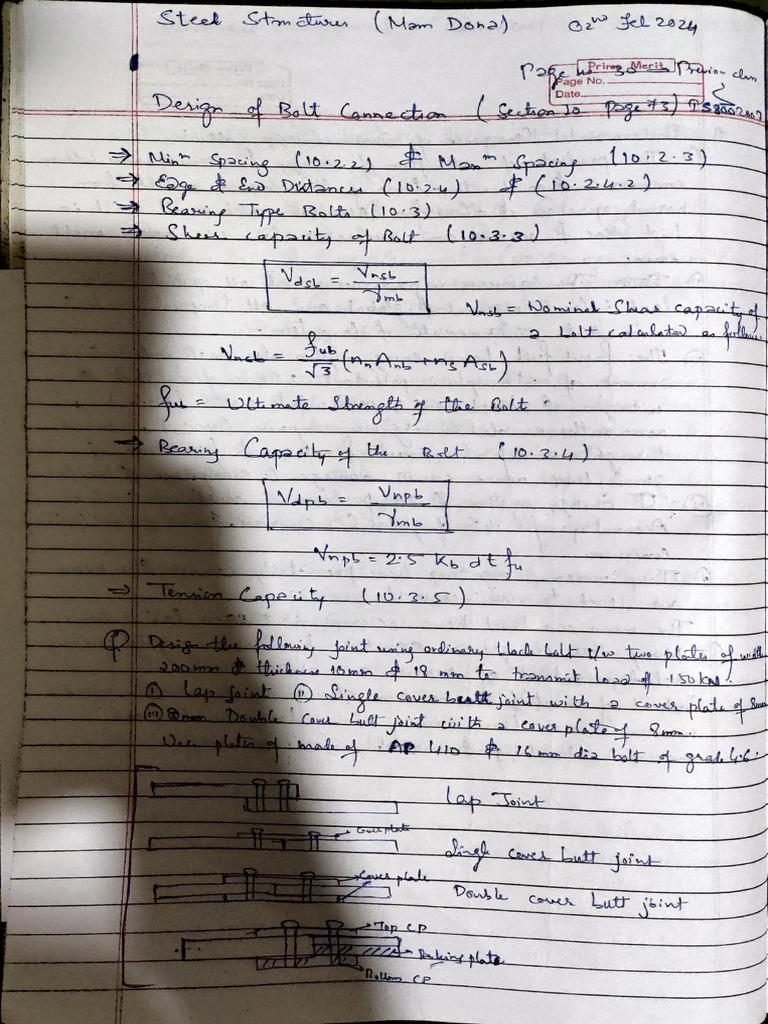 Steel Structures (Mam Dona) 02nd Feb 2024
Page no 30 → Previous class
Prime Merit
Page No.
Date
Design of Bolt Connection (Section 10 page 73) IS 800 2007
⇒ Minm Spacing (10.2.2) & Maxm Spacing (10.2.3)
⇒ Edge & End Distances (10.2.4) & (10.2.4.2)
⇒ Bearing Type Bolts (10.3)
⇒ Shear capacity of Bolt (10.3.3)
Vdsb = Vnsb / γmb
Vnsb = Nominal Shear capacity of
a bolt calculated as follows.
Vnsb = fub/√3 (nn Anb + ns Asb)
fub = Ultimate Strength of the Bolt
⇒ Bearing Capacity of the Bolt (10.3.4)
Vdpb = Vnpb / γmb
Vnpb = 2.5 Kb dt fu
⇒ Tension Capacity (10.3.5)
Q Design the following joint using ordinary black bolt b/w two plates of width
200mm & thickness 10mm & 18 mm to transmit load of 150 KN.
(i) Lap joint (ii) Single cover butt joint with a cover plate of 8mm
(iii) Double cover butt joint with a cover plate of 8mm.
Use plates of made of 410 & 16 mm dia bolt of grade 4.6
Lap Joint
Cover plate
Single cover butt joint
Cover plate
Double cover butt joint
Top CP
Packing plate
Bottom CP